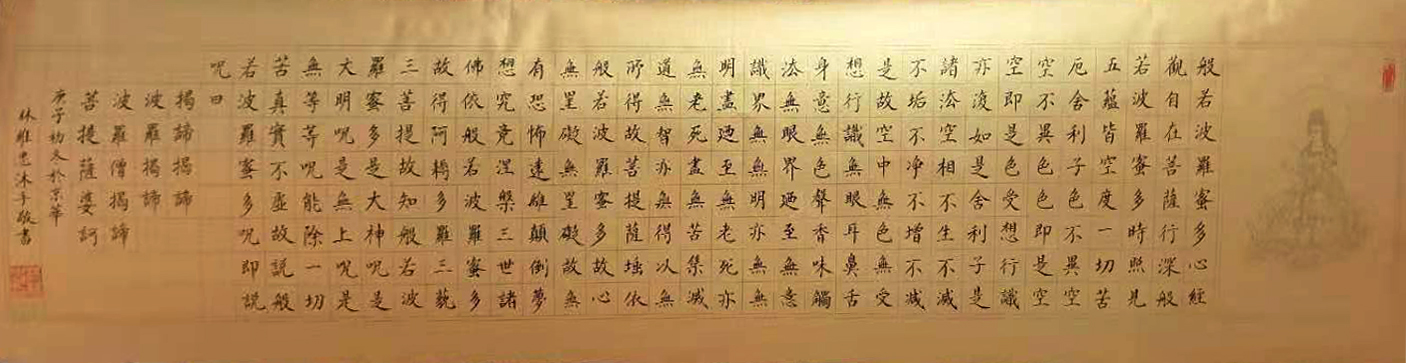 般若波羅蜜多心經
觀自在菩薩行深般
若波羅蜜多時照見
五蘊皆空度一切苦
厄舍利子色不異空
空不異色色即是空
空即是色受想行識
亦復如是舍利子是
諸法空相不生不滅
不垢不净不增不減
是故空中無色無受
想行識無眼耳鼻舌
身意無色聲香味觸
法無眼界廼至無意
識界無無明亦無無
明盡廼至無老死亦
無老死盡無苦集滅
道無智亦無得以無
所得故菩提薩埵依
般若波羅蜜多故心
無罣礙無罣礙故無
有恐怖遠離顛倒夢
想究竟涅槃三世諸
佛依般若波羅蜜多
故得阿耨多羅三藐
三菩提故知般若波
羅蜜多是大神呪是
大明呪是無上呪是
無等等呪能除一切
苦真實不虛故說般
若波羅蜜多呪即說
呪曰
揭諦揭諦
波羅揭諦
波羅僧揭諦
菩提薩婆訶
庚子初冬於京華
林忠沐手敬書